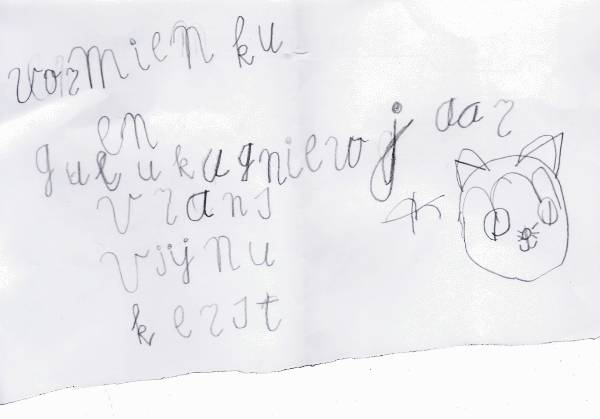 vormien ku
en
gulukugniew jaar
vrans
vijnu
kerst